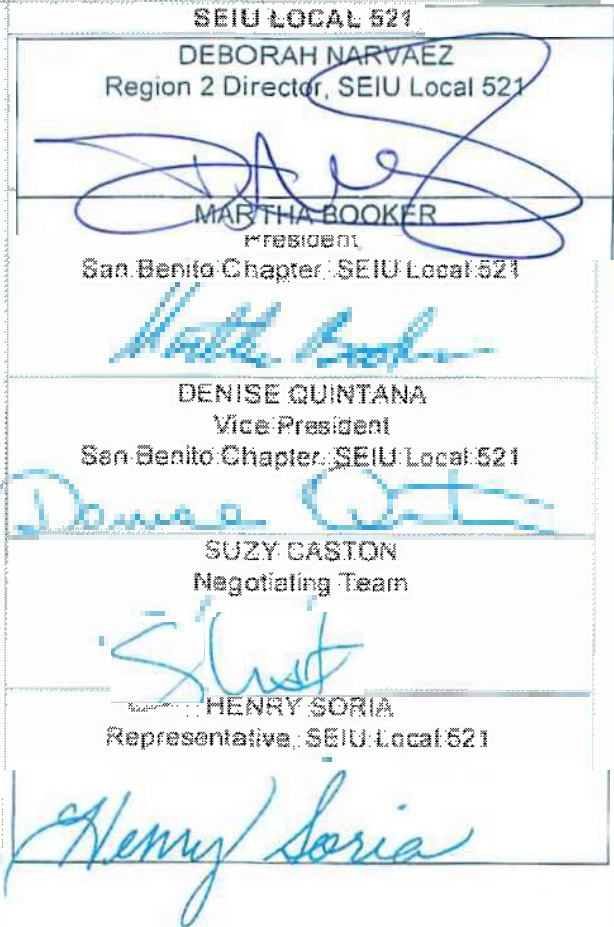 SEIU LOCAL 521
DEBORAH NARVAEZ
Region 2 Director, SEIU Local 521
MARTHA BOOKER
President
San Benito Chapter, SEIU Local 521
Martha Booker
DENISE QUINTANA
Vice President
San Benito Chapter, SEIU Local 521
Denise
SUZY CASTON
Negotiating Team
HENRY SORIA
Representative, SEIU Local 521
Henry Soria